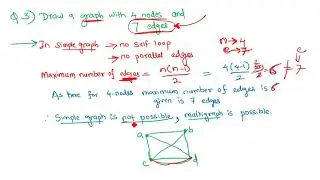 Q.3) Draw a graph with 4 nodes and
7 edges
→ In simple graph → no self loop
→ no parallel edges
n → 4
e → 7
Maximum number of edges = n(n-1)/2 = 4(4-1)/2 = 6 ≠ 7
As time for 4-nodes maximum number of edges is 6
given is 7 edges
∴ Simple graph is not possible, multigraph is possible.
a b
c d